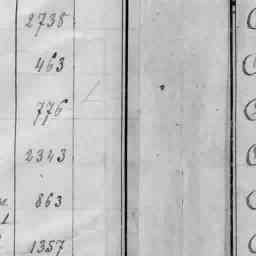 2738
463
776
2343
863
1357